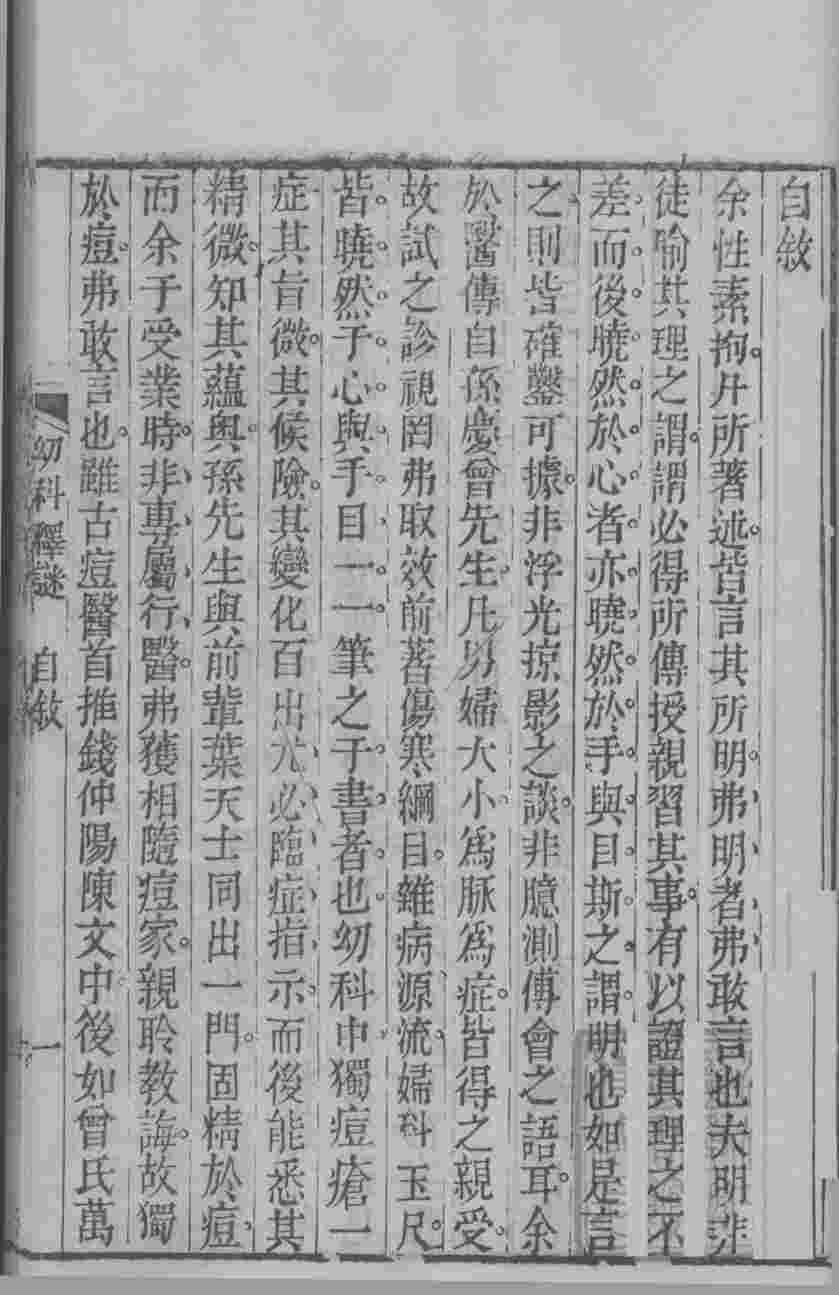 自敘
余性素拘。凡所著述。皆言其所明。弗明者。弗敢言也。夫明非
徒喻其理之謂。謂必得所傳授。親習其事。有以證其理之不
差。而後曉然於心者。亦曉然於手與目。斯之謂明也。如是言
之。則皆確鑿可據。非浮光掠影之談。非臆測傅會之語耳。余
於醫。傳自孫慶曾先生。凡男婦大小。為脉為症。皆得之親受。
故試之診視。罔弗取效。前著傷寒綱目。雜病源流。婦科玉尺。
皆曉然于心與手目。一一筆之于書者也。幼科中獨痘瘡一
症。其旨微。其候險。其變化百出。尤必臨症指示。而後能悉其
精微。知其蘊奧。孫先生與前輩葉天士同出一門。固精於痘。
而余于受業時。非專屬行醫。弗獲相隨痘家。親聆教誨。故獨
於痘。弗敢言也。雖古痘醫首推錢仲陽陳文中。後如曾氏萬
幼科釋謎　自敘　一